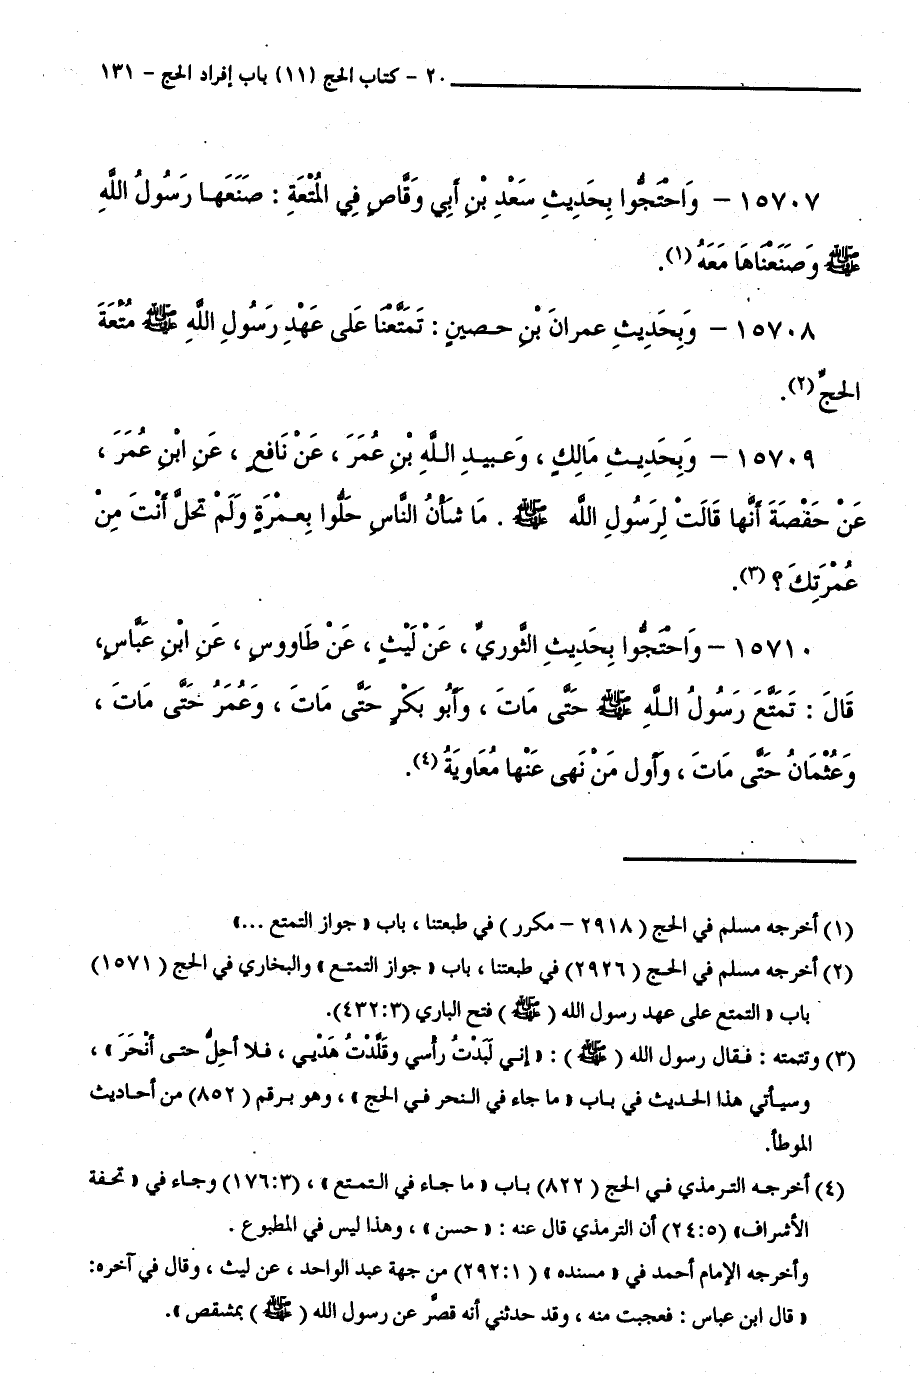 ٢٠ - كتاب الحج (١١) باب إفراد الحج - ١٣١
١٥٧٠٧ - وَاحْتَجُّوا بِحَدِيثِ سَعْدِ بْنِ أَبِي وَقَّاصٍ فِي الْمُتْعَةِ : صَنَعَهَا رَسُولُ اللَّهِ
ﷺ وَصَنَعْنَاهَا مَعَهُ (١).
١٥٧٠٨ - وَبِحَدِيثِ عمرانَ بْنِ حصينٍ : تَمَتَّعْنَا عَلى عَهْدِ رَسُولِ اللَّهِ ﷺ مُتْعَةَ
الحجِّ (٢).
١٥٧٠٩ - وَبِحَدِيثِ مَالِكٍ ، وَعبيدِ اللَّهِ بْنِ عُمَرَ ، عَنْ نَافعٍ ، عَنِ ابْنِ عُمَرَ ،
عَنْ حَفْصَةَ أَنَّها قَالَتْ لِرَسُولِ اللَّه ﷺ . مَا شأْنُ النَّاسِ حَلُّوا بِعمْرَةٍ وَلَمْ تحلَّ أَنْتَ مِنْ
عُمْرَتِكَ ؟ (٣).
١٥٧١٠ - وَاحْتَجُّوا بِحَدِيثِ الثَّوريِّ ، عَنْ لَيْثٍ ، عَنْ طَاووسٍ ، عَنِ ابْنِ عَبَّاسٍ،
قَالَ : تَمَتَّعَ رَسُولُ اللَّهِ ﷺ حَتَّى مَاتَ ، وَأَبُو بَكْرٍ حَتَّى مَاتَ ، وَعُمَرُ حَتَّى مَاتَ ،
وَعُثْمَانُ حَتَّى مَاتَ ، وَأول مَنْ نَهى عَنْها مُعَاوِيَةُ (٤).
(١) أخرجه مسلم في الحج ( ٢٩١٨ - مكرر ) في طبعتنا ، باب « جواز التمتع ...»
(٢) أخرجه مسلم في الحج (٢٩٢٦) في طبعتنا ، باب « جواز التمتع » والبخاري في الحج ( ١٥٧١)
باب « التمتع على عهد رسول الله ( ﷺ ) فتح الباري (٤٣٢:٣).
(٣) وتتمته : فقال رسول الله ( ﷺ ) : « إني لَبَدْتُ رأسي وقَلَّدْتُ هَدْيي ، فلا أحِلُّ حتى أنْحَرَ » ،
وسيأتي هذا الحديث في باب « ما جاء في النحر في الحج » ، وهو برقم ( ٨٥٢) من أحاديث
الموطأ.
(٤) أخرجه الترمذي في الحج ( ٨٢٢) باب « ما جاء في التمتع » ، (١٧٦:٣) وجاء في « تحفة
الأشراف» (٢٤:٥) أن الترمذي قال عنه : « حسن » ، وهذا ليس في المطبوع .
وأخرجه الإمام أحمد في « مسنده » ( ٢٩٢:١) من جهة عبد الواحد ، عن ليث ، وقال في آخره:
« قال ابن عباس : فعجبت منه ، وقد حدثني أنه قصَّر عن رسول الله ( ﷺ ) بمشقص ».